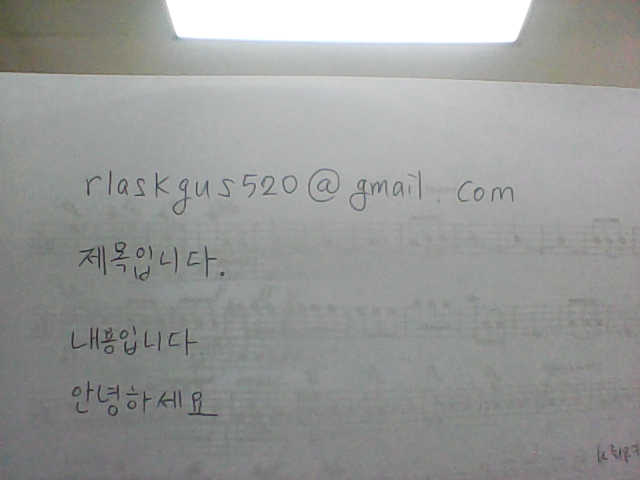 rlaskgus520@gmail.com
제목입니다.
내용입니다
안녕하세요